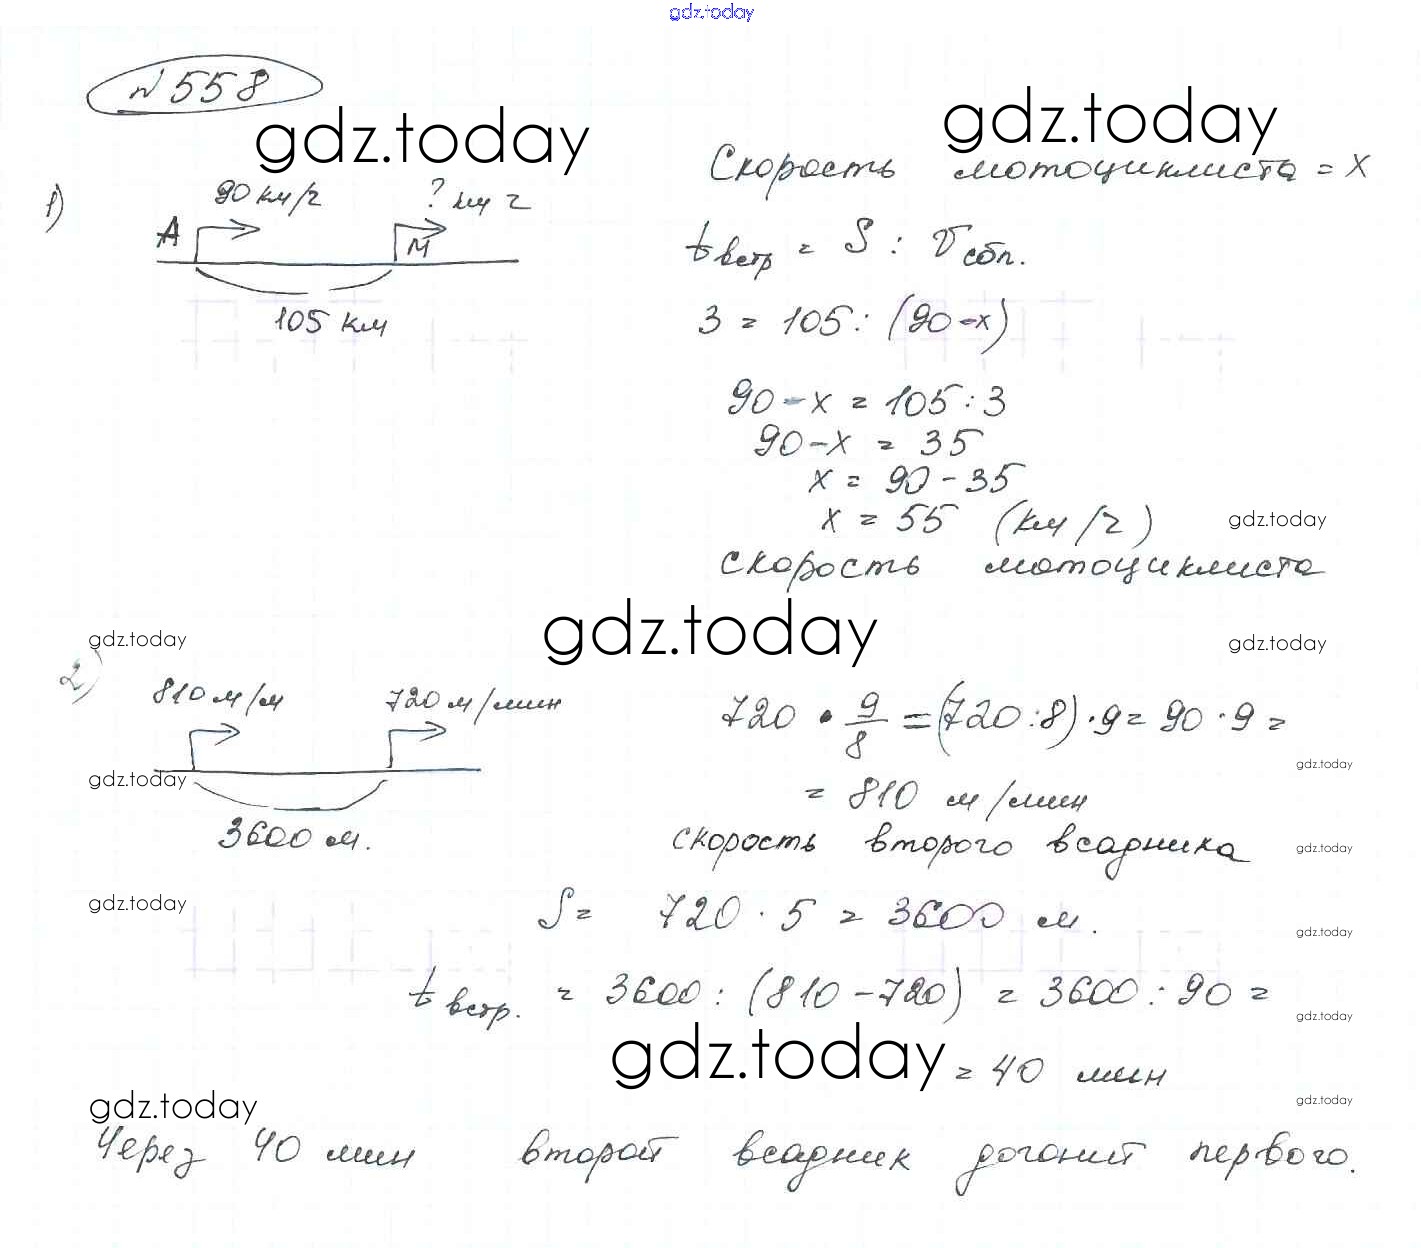 gdz.today
№ 558
gdz.today
gdz.today
1)
90 км/ч
? км ч
А
М
105 км
Скорость мотоциклиста = x
tвстр = S : Vсбл.
3 = 105 : (90 - x)
90 - x = 105 : 3
90 - x = 35
x = 90 - 35
x = 55 (км/ч)
gdz.today
скорость мотоциклиста
gdz.today
gdz.today
gdz.today
2)
810 м/м
720 м/мин
gdz.today
3600 м.
720 • 9/8 = (720 : 8) · 9 = 90 · 9 =
gdz.today
= 810 м/мин
скорость второго всадника
gdz.today
gdz.today
S = 720 · 5 = 3600 м.
gdz.today
tвстр. = 3600 : (810 - 720) = 3600 : 90 =
gdz.today
gdz.today
= 40 мин
gdz.today
gdz.today
Через 40 мин второй всадник догонит первого.